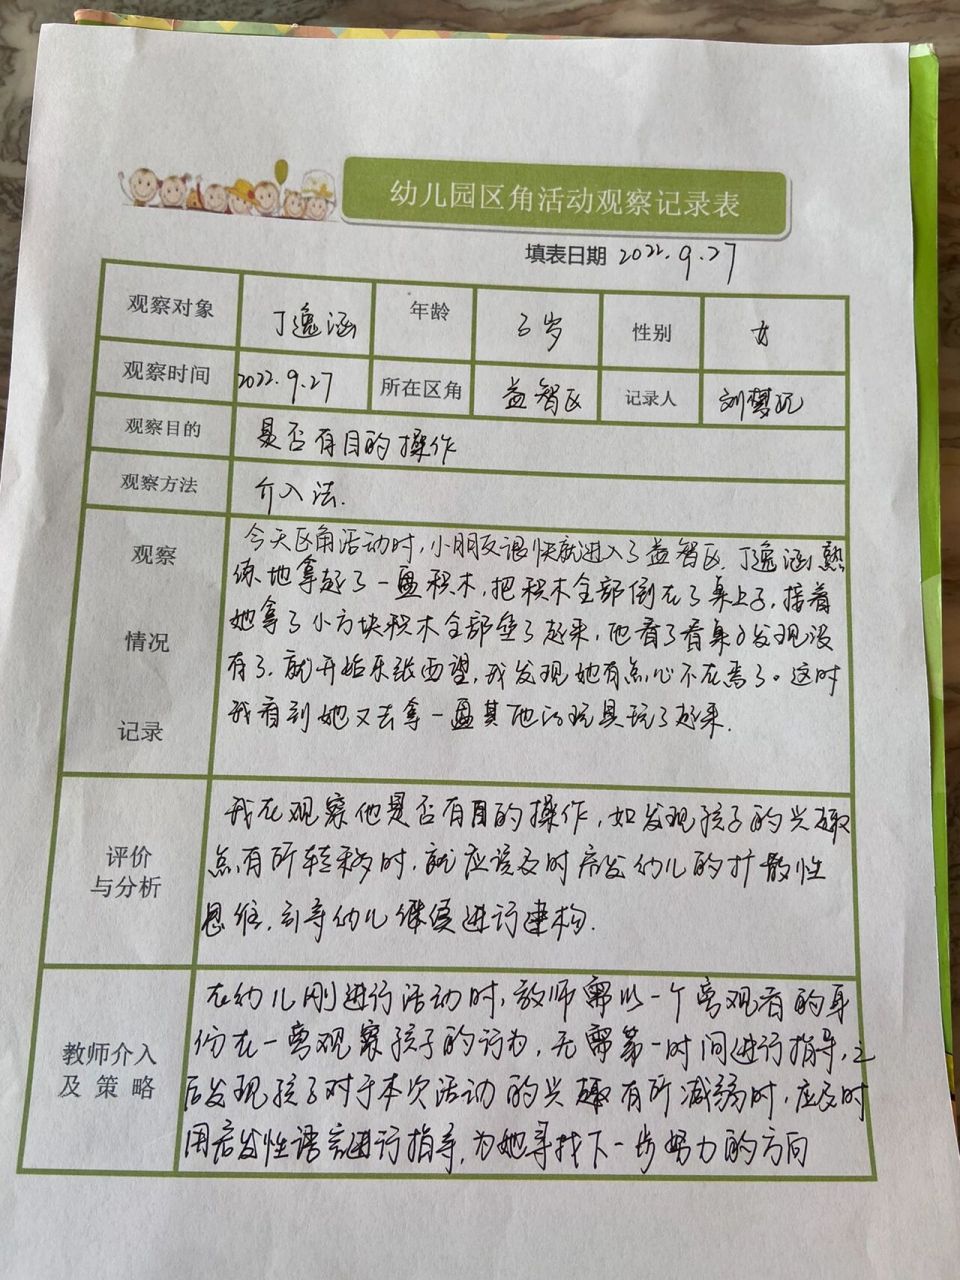 幼儿园区角活动观察记录表
填表日期 2022.9.27
观察对象 丁逸涵 年龄 3岁 性别 女
观察时间 2022.9.27 所在区角 益智区 记录人 刘梦
观察目的 是否有目的操作
观察方法 介入法.
观察 情况 记录
今天区角活动时,小朋友很快就进入了益智区.丁逸涵熟
练地拿起了一盘积木,把积木全部倒在了桌上子,接着
她拿了小方块积木全部垒了起来,他看了看桌子发现没
有了.就开始东张西望,我发现她有点心不在焉了。这时
我看到她又去拿一盘其他的玩具玩了起来.
评价
与分析
我在观察他是否有目的操作,如发现孩子的兴趣
点有所转移时,就应该及时启发幼儿的扩散性
思维,引导幼儿继续进行建构.
教师介入
及策略
在幼儿刚进行活动时,教师需以一个旁观者的身
份在一旁观察孩子的行为,无需第一时间进行指导,之
后发现孩子对于本次活动的兴趣有所减弱时,应及时
用启发性语言进行指导,为她寻找下一步努力的方向